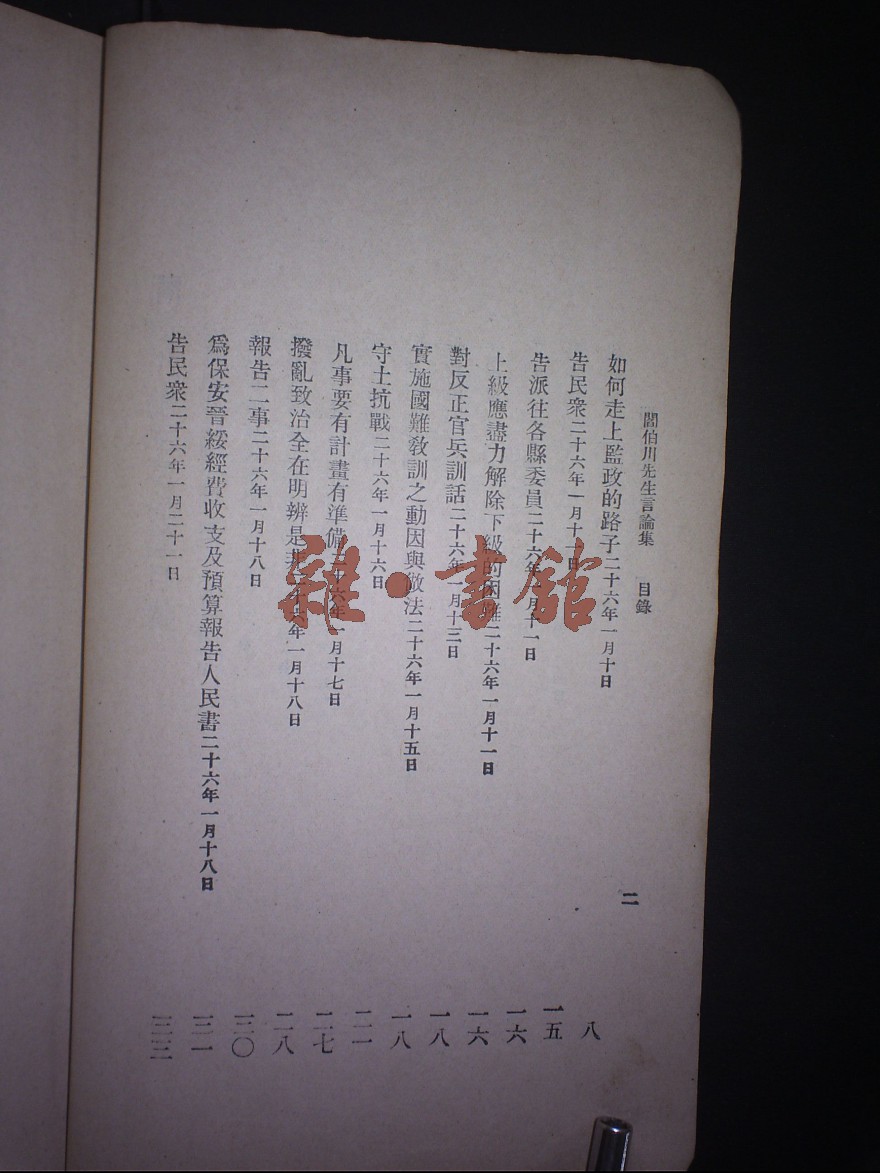 閻伯川先生言論集 目錄 二
如何走上監政的路子二十六年一月十日 八
告民衆二十六年一月十一日 一五
告派往各縣委員二十六年一月十一日 一六
上級應盡力解除下級的困難二十六年一月十一日 一六
對反正官兵訓話二十六年一月十三日 一八
實施國難教訓之動因與做法二十六年一月十五日 一八
守土抗戰二十六年一月十六日 二一
凡事要有計畫有準備二十六年一月十七日 二七
撥亂致治全在明辨是非二十六年一月十八日 二八
報告二事二十六年一月十八日 三〇
爲保安晉綏經費收支及預算報告人民書二十六年一月十八日 三一
告民衆二十六年一月二十一日 三三
雜·書館